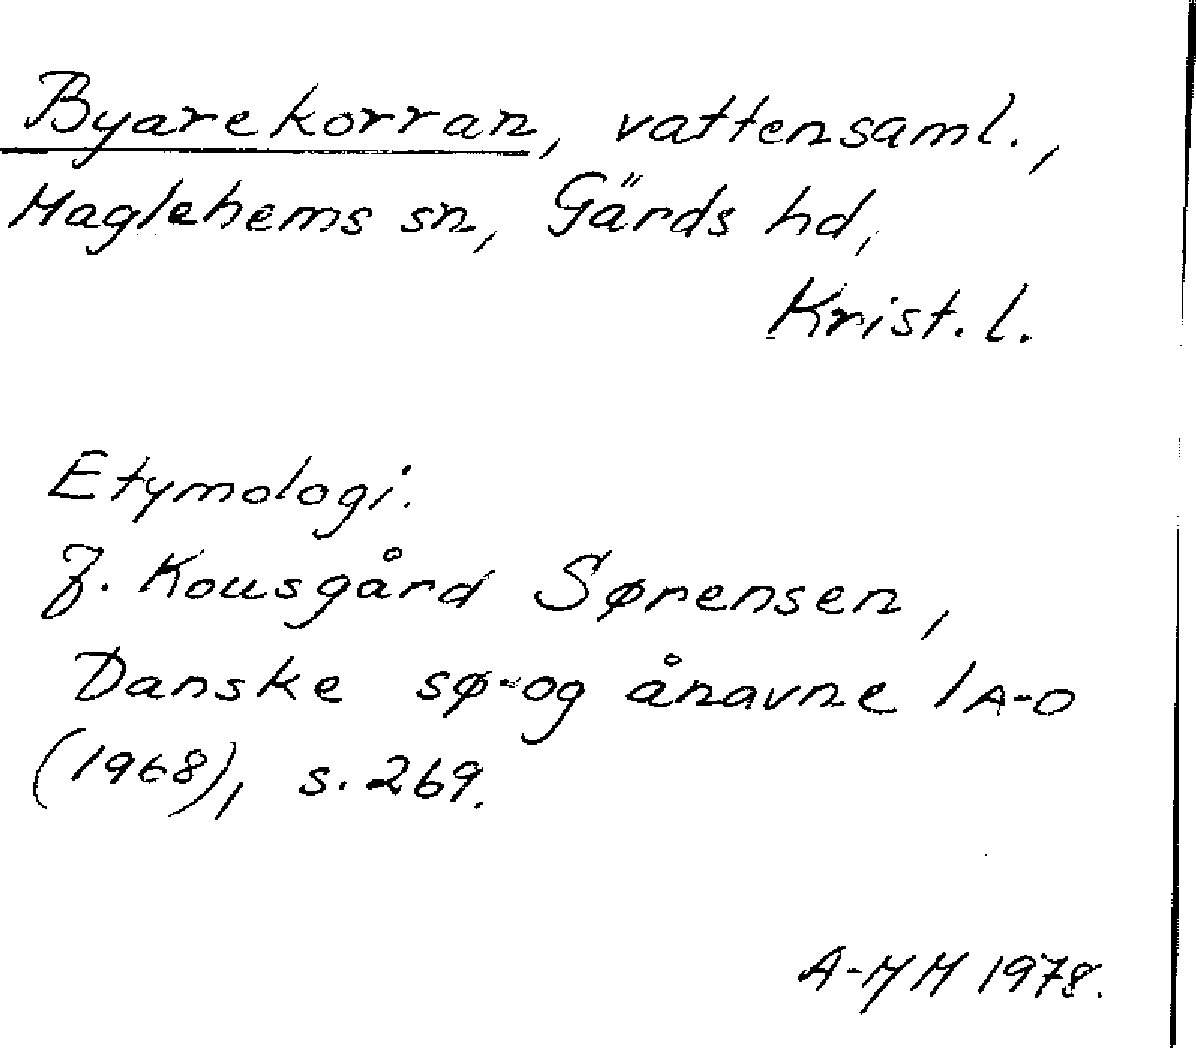 Byarekorran, vattensaml.,
Maglehems sn, Gärds hd,
Krist. l.
Etymologi.
J. Kousgård Sørensen,
Danske sø- og ånavne I A-D
(1968), s. 269.
A-MM 1978.